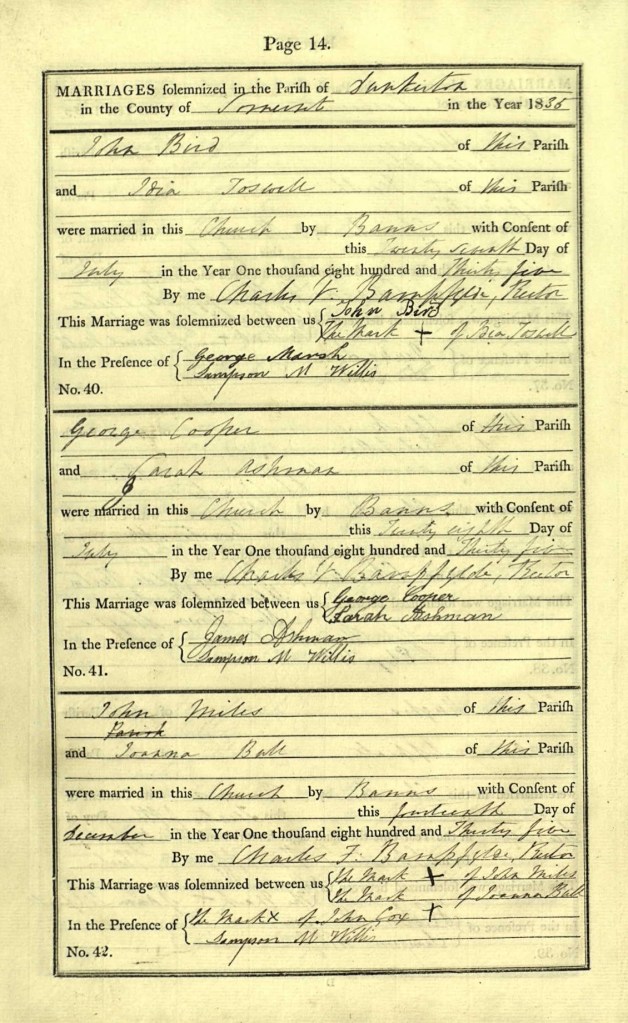 Page 14.
MARRIAGES solemnized in the Parish of Dunkerton
in the County of Somerset in the Year 1835
John Bird of this Parish
and Toswell of this Parish
were married in this Church by Banns with Consent of
this Twenty seventh Day of
July in the Year One thousand eight hundred and Thirty five
By me Charles F. Bampfylde, Rector
This Marriage was solemnized between us { John Bird
The Mark + of Toswell
In the Presence of { George Marsh
Sampson M Willis
No. 40.
George Cooper of this Parish
and Sarah Ashman of this Parish
were married in this Church by Banns with Consent of
this eighth Day of
July in the Year One thousand eight hundred and Thirty five
By me Charles F Bampfylde, Rector
This Marriage was solemnized between us { George Cooper
Sarah Ashman
In the Presence of { James Ashman
Sampson M Willis
No. 41.
John Miles of this Parish
Parish
and Joanna Ball of this Parish
were married in this Church by Banns with Consent of
this Day of
December in the Year One thousand eight hundred and Thirty five
By me Charles F. Bampfylde, Rector
This Marriage was solemnized between us { The Mark + of John Miles
The Mark of Joanna Ball
In the Presence of { The Mark x of John Cox +
Sampson M Willis
No. 42.